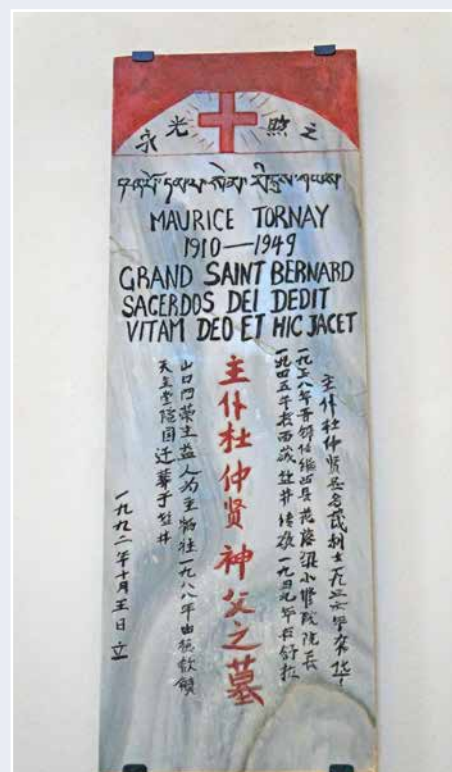 永光照之
MAURICE TORNAY
1910—1949
GRAND SAINT BERNARD
SACERDOS DEI DEDIT
VITAM DEO ET HIC JACET
主仆杜仲贤圣名茂利士一九三六年来华
一九三八年晋铎任维西县花落小修院院长
一九四五年赴西藏盐井传教一九四九年在舒拉
主仆杜仲贤神父之墓
山口为荣主益人为主牺牲一九八八年由德钦
天主堂院园迁葬于盐井
一九九二年十月日立